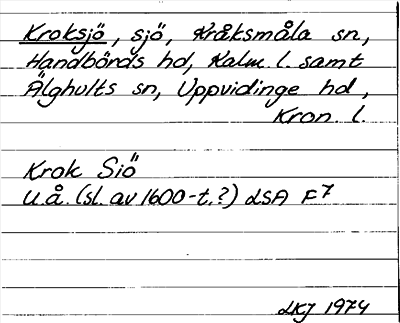 Kroksjö, sjö, Kråksmåla sn,
Handbörds hd, Kalm. l. samt
Älghults sn, Uppvidinge hd,
Kron. l.
Krok Siö
U.å. (sl. av 1600-t.?) LSA F7
LKJ 1974